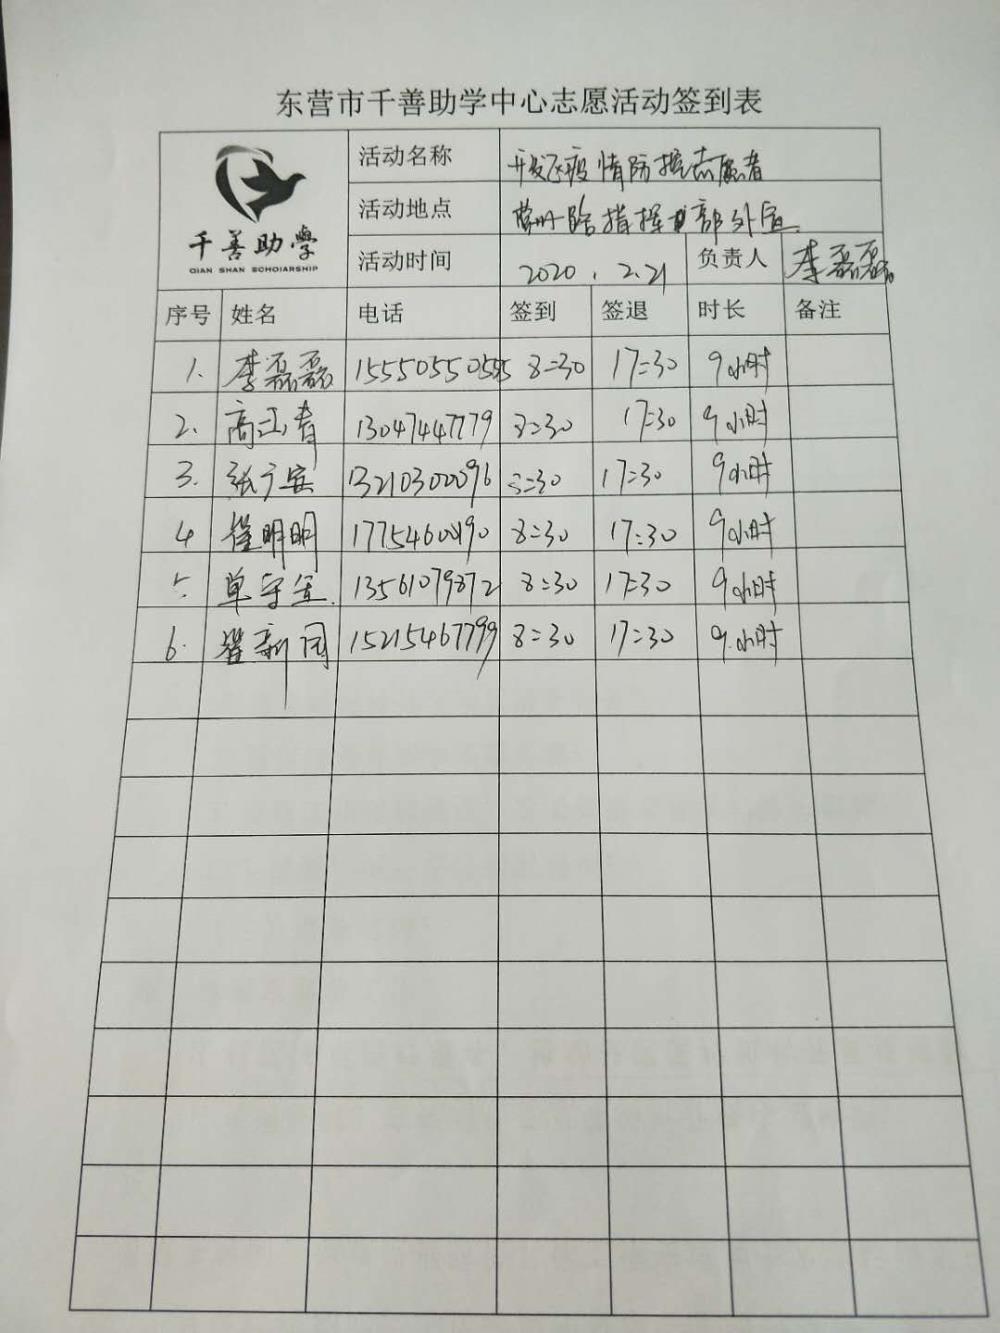 东营市千善助学中心志愿活动签到表
千善助學
QIAN SHAN SCHOIARSHIP
活动名称 开发区疫情防控志愿者
活动地点 路指挥部外宣
活动时间 2020.2.21 负责人 李磊磊
序号 姓名 电话 签到 签退 时长 备注
1. 李磊磊 15550550555 8:30 17:30 9小时
2. 高江青 13047447779 8:30 17:30 9小时
3. 张广安 13210300096 8:30 17:30 9小时
4 崔明明 17754600190 8:30 17:30 9小时
5. 单守金 13561079872 8:30 17:30 9小时
6. 翟新同 15215467799 8:30 17:30 9小时